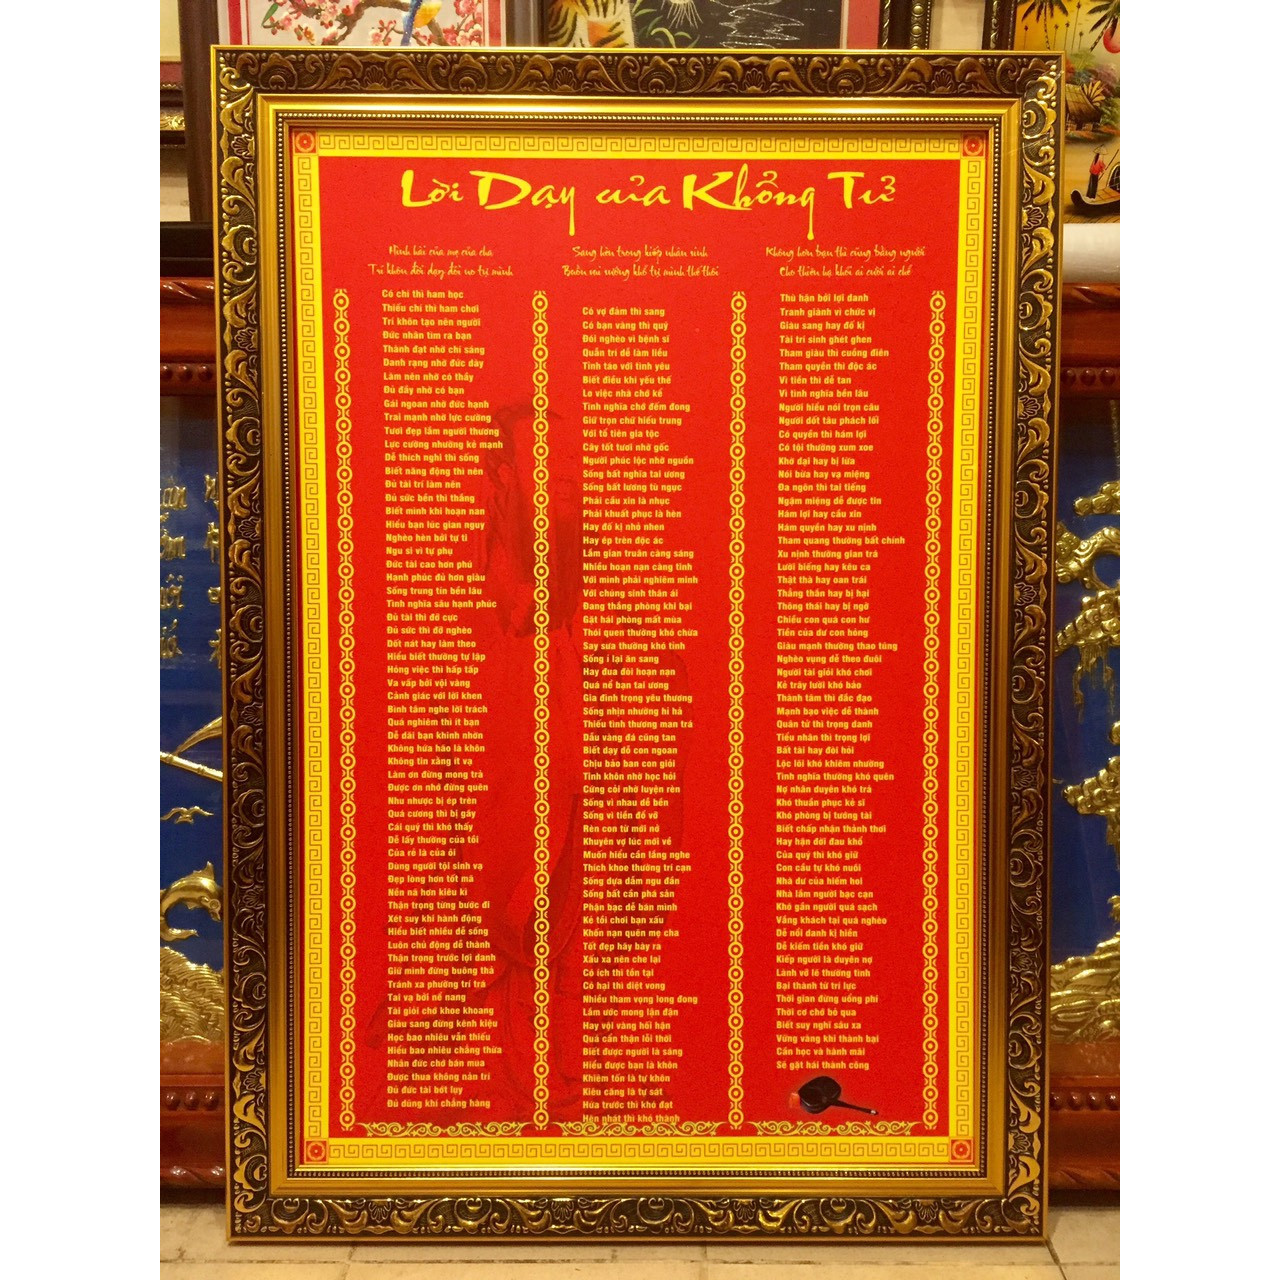 Lời Dạy của Khổng Tử
Hình hài của mẹ của cha
Trí khôn đời dạy đói no tự mình
Có chí thì ham học
Thiếu chí thì ham chơi
Trí khôn tạo nên người
Đức nhân tìm ra bạn
Thành đạt nhờ chí sáng
Danh rạng nhờ đức dày
Làm nên nhờ có thầy
Đủ đầy nhờ có bạn
Gái ngoan nhờ đức hạnh
Trai mạnh nhờ lực cường
Tươi đẹp lắm người thương
Lực cường nhường kẻ mạnh
Dễ thích nghi thì sống
Biết năng động thì nên
Đủ tài trí làm nên
Đủ sức bền thì thắng
Biết mình khi hoạn nạn
Hiểu bạn lúc gian nguy
Nghèo hèn bởi tự ti
Ngu si vì tự phụ
Đức tài cao hơn phú
Hạnh phúc đủ hơn giàu
Sống trung tín bền lâu
Tình nghĩa sâu hạnh phúc
Đủ tài thì đỡ cực
Đủ sức thì đỡ nghèo
Dốt nát hay làm theo
Hiểu biết thường tự lập
Hỏng việc thì hấp tấp
Va vấp bởi vội vàng
Cảnh giác với lời khen
Bình tâm nghe lời trách
Quá nghiêm thì ít bạn
Dễ dãi bạn khinh nhờn
Không hứa hão là khôn
Không tin xằng ít vạ
Làm ơn đừng mong trả
Được ơn nhớ đừng quên
Nhu nhược bị ép trên
Quá cương thì bị gãy
Cái quý thì khó thấy
Dễ lấy thường của tồi
Của rẻ là của ôi
Dùng người tội sinh vạ
Đẹp lòng hơn tốt mã
Nền nã hơn kiêu kì
Thận trọng từng bước đi
Xét suy khi hành động
Hiểu biết nhiều dễ sống
Luôn chủ động dễ thành
Thận trọng trước lợi danh
Giữ mình đừng buông thả
Tránh xa phường trí trá
Tai vạ bởi nể nang
Tài giỏi chớ khoe khoang
Giàu sang đừng kênh kiệu
Học bao nhiêu vẫn thiếu
Hiểu bao nhiêu chẳng thừa
Nhân đức chớ bán mua
Được thua không nản trí
Đủ đức tài bớt lụy
Đủ dũng khí chẳng hàng
Sang hèn trong kiếp nhân sinh
Buồn vui sướng khổ tự mình thế thôi
Có vợ đảm thì sang
Có bạn vàng thì quý
Đói nghèo vì bệnh sĩ
Quẫn trí dễ làm liều
Tỉnh táo với tình yêu
Biết điều khi yếu thế
Lo việc nhà chớ kể
Tình nghĩa chớ đếm đong
Giữ trọn chữ hiếu trung
Với tổ tiên gia tộc
Cây tốt tươi nhờ gốc
Người phúc lộc nhờ nguồn
Sống bất nghĩa tai ương
Sống bất lương tù ngục
Phải cầu xin là nhục
Phải khuất phục là hèn
Hay đố kị nhỏ nhen
Hay ép trên độc ác
Lắm gian truân càng sáng
Nhiều hoạn nạn càng tinh
Với mình phải nghiêm minh
Với chúng sinh thân ái
Đang thắng phòng khi bại
Gặt hái phòng mất mùa
Thói quen thường khó chừa
Say sưa thường khó tỉnh
Sống ỉ lại ăn sang
Hay đua đòi hoạn nạn
Quá nể bạn tai ương
Gia đình trọng yêu thương
Sống nhịn nhường hỉ hả
Thiếu tình thương man trá
Dẫu vàng đá cũng tan
Biết dạy dỗ con ngoan
Chịu bảo ban con giỏi
Tinh khôn nhờ học hỏi
Cứng cỏi nhờ luyện rèn
Sống vì nhau dễ bền
Sống vì tiền đổ vỡ
Rèn con từ mới nở
Khuyên vợ lúc mới về
Muốn hiểu cần lắng nghe
Thích khoe thường trí cạn
Sống dựa dẫm ngu đần
Sống bất cần phá sản
Phận bạc dễ bán mình
Kẻ tồi chơi bạn xấu
Khốn nạn quên mẹ cha
Tốt đẹp hãy bày ra
Xấu xa nên che lại
Có ích thì tồn tại
Có hại thì diệt vong
Nhiều tham vọng long đong
Lắm ước mong lận đận
Hay vội vàng hối hận
Quá cẩn thận lỗi thời
Biết được người là sáng
Hiểu được bạn là khôn
Khiêm tốn là tự khôn
Kiêu căng là tự sát
Hứa trước thì khó đạt
Hèn nhát thì khó thành
Không hơn bạn thì cũng bằng người
Cho thiên hạ khỏi ai cười ai chê
Thù hận bởi lợi danh
Tranh giành vì chức vị
Giàu sang hay đố kị
Tài trí sinh ghét ghen
Tham giàu thì cuồng điên
Tham quyền thì độc ác
Vì tiền thì dễ tan
Vì tình nghĩa bền lâu
Người hiểu nói trọn câu
Người dốt tâu phách lối
Có quyền thì hám lợi
Có tội thường xum xoe
Khờ dại hay bị lừa
Nói bừa hay vạ miệng
Đa ngôn thì tai tiếng
Ngậm miệng dễ được tin
Hám lợi hay cầu xin
Hám quyền hay xu nịnh
Tham quang thường bất chính
Xu nịnh thường gian trá
Lười biếng hay kêu ca
Thật thà hay oan trái
Thẳng thắn hay bị hại
Thông thái hay bị ngờ
Chiều con quá con hư
Tiền của dư con hỏng
Giàu mạnh thường thao túng
Nghèo vụng dễ theo đuôi
Người tài giỏi khó chơi
Kẻ trây lười khó bảo
Thành tâm thì đắc đạo
Mạnh bạo việc dễ thành
Quân tử thì trọng danh
Tiểu nhân thì trọng lợi
Bất tài hay đòi hỏi
Lọc lõi khó khiêm nhường
Tình nghĩa thường khó quên
Nợ nhân duyên khó trả
Khó thuần phục kẻ sĩ
Khó phòng bị tướng tài
Biết chấp nhận thảnh thơi
Hay hận đời đau khổ
Của quý thì khó giữ
Con cầu tự khó nuôi
Nhà dư của hiếm hoi
Nhà lắm người bạc cạn
Khó gần người quá sạch
Vắng khách tại quá nghèo
Dễ nổi danh kị hiền
Dễ kiếm tiền khó giữ
Kiếp người là duyên nợ
Lành vỡ lẽ thường tình
Bại thành từ trí lực
Thời gian đừng uổng phí
Thời cơ chớ bỏ qua
Biết suy nghĩ sâu xa
Vững vàng khi thành bại
Cần học và hành mãi
Sẽ gặt hái thành công